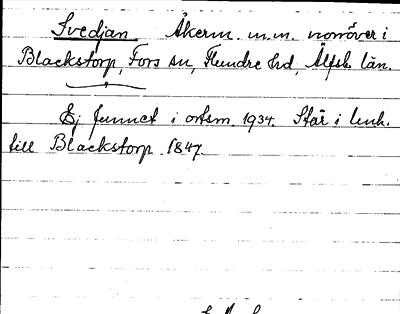 Svedjan Åkerm. m.m. norröver i
Blackstorp, Fors sn, Flundre hd, Älfsb. län.
Ej funnet i ortsn. 1934. Står i link.
till Blackstorp 1847.